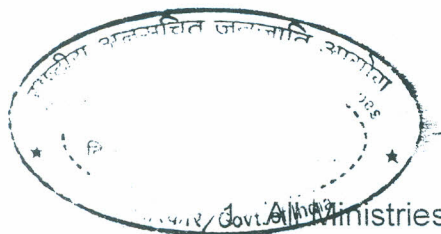 राष्ट्रीय अनुसूचित जनजाति आयोग
Govt. of India
1. All Ministries